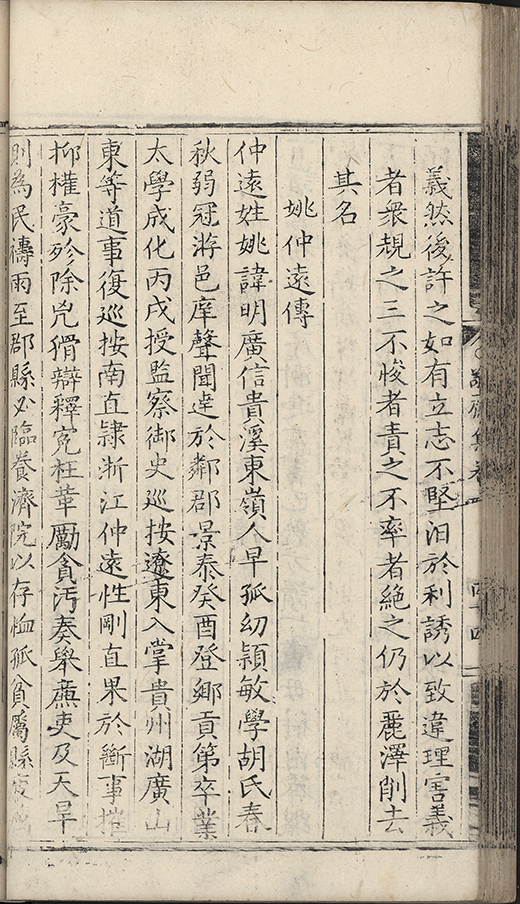 敬齋集卷
四十四
義然後許之如有立志不堅汩於利誘以致違理害義
者衆規之三不悛者責之不率者絶之仍於麗澤削去
其名
姚仲遠傳
仲遠姓姚諱明廣信貴溪東嶺人早孤幼穎敏學胡氏春
秋弱冠游邑庠聲聞逹於鄰郡景泰癸酉登鄉貢第卒業
太學成化丙戌授監察御史巡按遼東入掌貴州湖廣山
東等道事復巡按南直隷浙江仲遠性剛直果於斷事摧
抑權豪殄除兇猾辯釋寃枉革勵貪汚奏舉廉吏及天旱
則為民禱雨至郡縣必臨養濟院以存恤孤貧屬縣